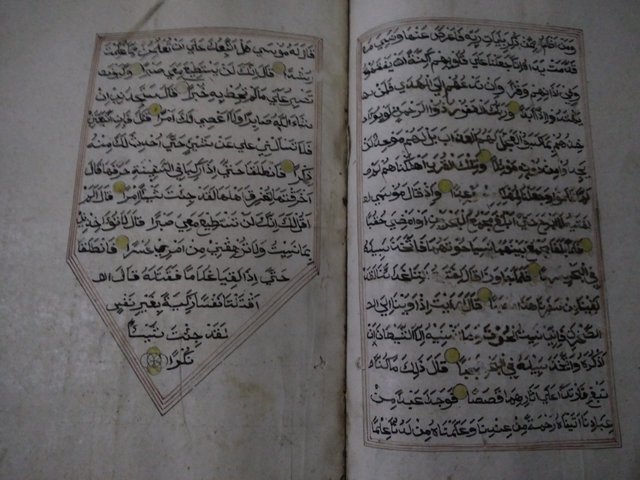 ومن اظلم ممن ذكر بايات ربه فاعرض عنها ونسي ما
قدمت يداه انا جعلنا على قلوبهم اكنة ان يفقهوه
وفي ءاذانهم وقرا وان تدعهم الى الهدى فلن يه
تدوا اذا ابدا وربك الغفور ذو الرحمة لو يؤا
خذهم بما كسبوا لعجل لهم العذاب بل لهم موعد لن
يجدوا من دونه موئلا وتلك القرى اهلكناهم لم
ا ظلموا وجعلنا لمهلكهم موعدا واذ قال موسى
لفتيه لا ابرح حتى ابلغ مجمع البحرين او امضي حقبا
فلما بلغا مجمع بينهما نسيا حوتهما فاتخذ سبيله
في البحر سربا فلما جاوزا قال لفتيه اتنا غداءنا لقد
لقينا من سفرنا هذا نصبا قال ارايت اذ اوينا الى ا
لصخرة فاني نسيت الحوت وما انسانيه الا الشيطان ان
اذكره واتخذ سبيله في البحر عجبا قال ذلك ما كنا
نبغ فارتدا على اثارهما قصصا فوجدا عبدا من
عبادنا اتيناه رحمة من عندنا وعلمناه من لدنا علما
قال له موسى هل اتبعك على ان تعلمن مما علمت
رشدا قال انك لن تستطيع معي صبرا وكيف
تصبر على ما لم تحط به خبرا قال ستجدني ان
شاء الله صابرا ولا اعصي لك امرا قال فان اتبعتني
فلا تسالني عن شيء حتى احدث لك منه
ذكرا فانطلقا حتى اذا ركبا في السفينة خرقها قال
اخرقتها لتغرق اهلها لقد جئت شيئا امرا قال الم
اقل انك لن تستطيع معي صبرا قال لا تؤاخذني
بما نسيت ولا ترهقني من امري عسرا فانطلقا
حتى اذا لقيا غلاما فقتله قال ا
قتلت نفسا زكية بغير نفس
لقد جئت شيئا
نكرا